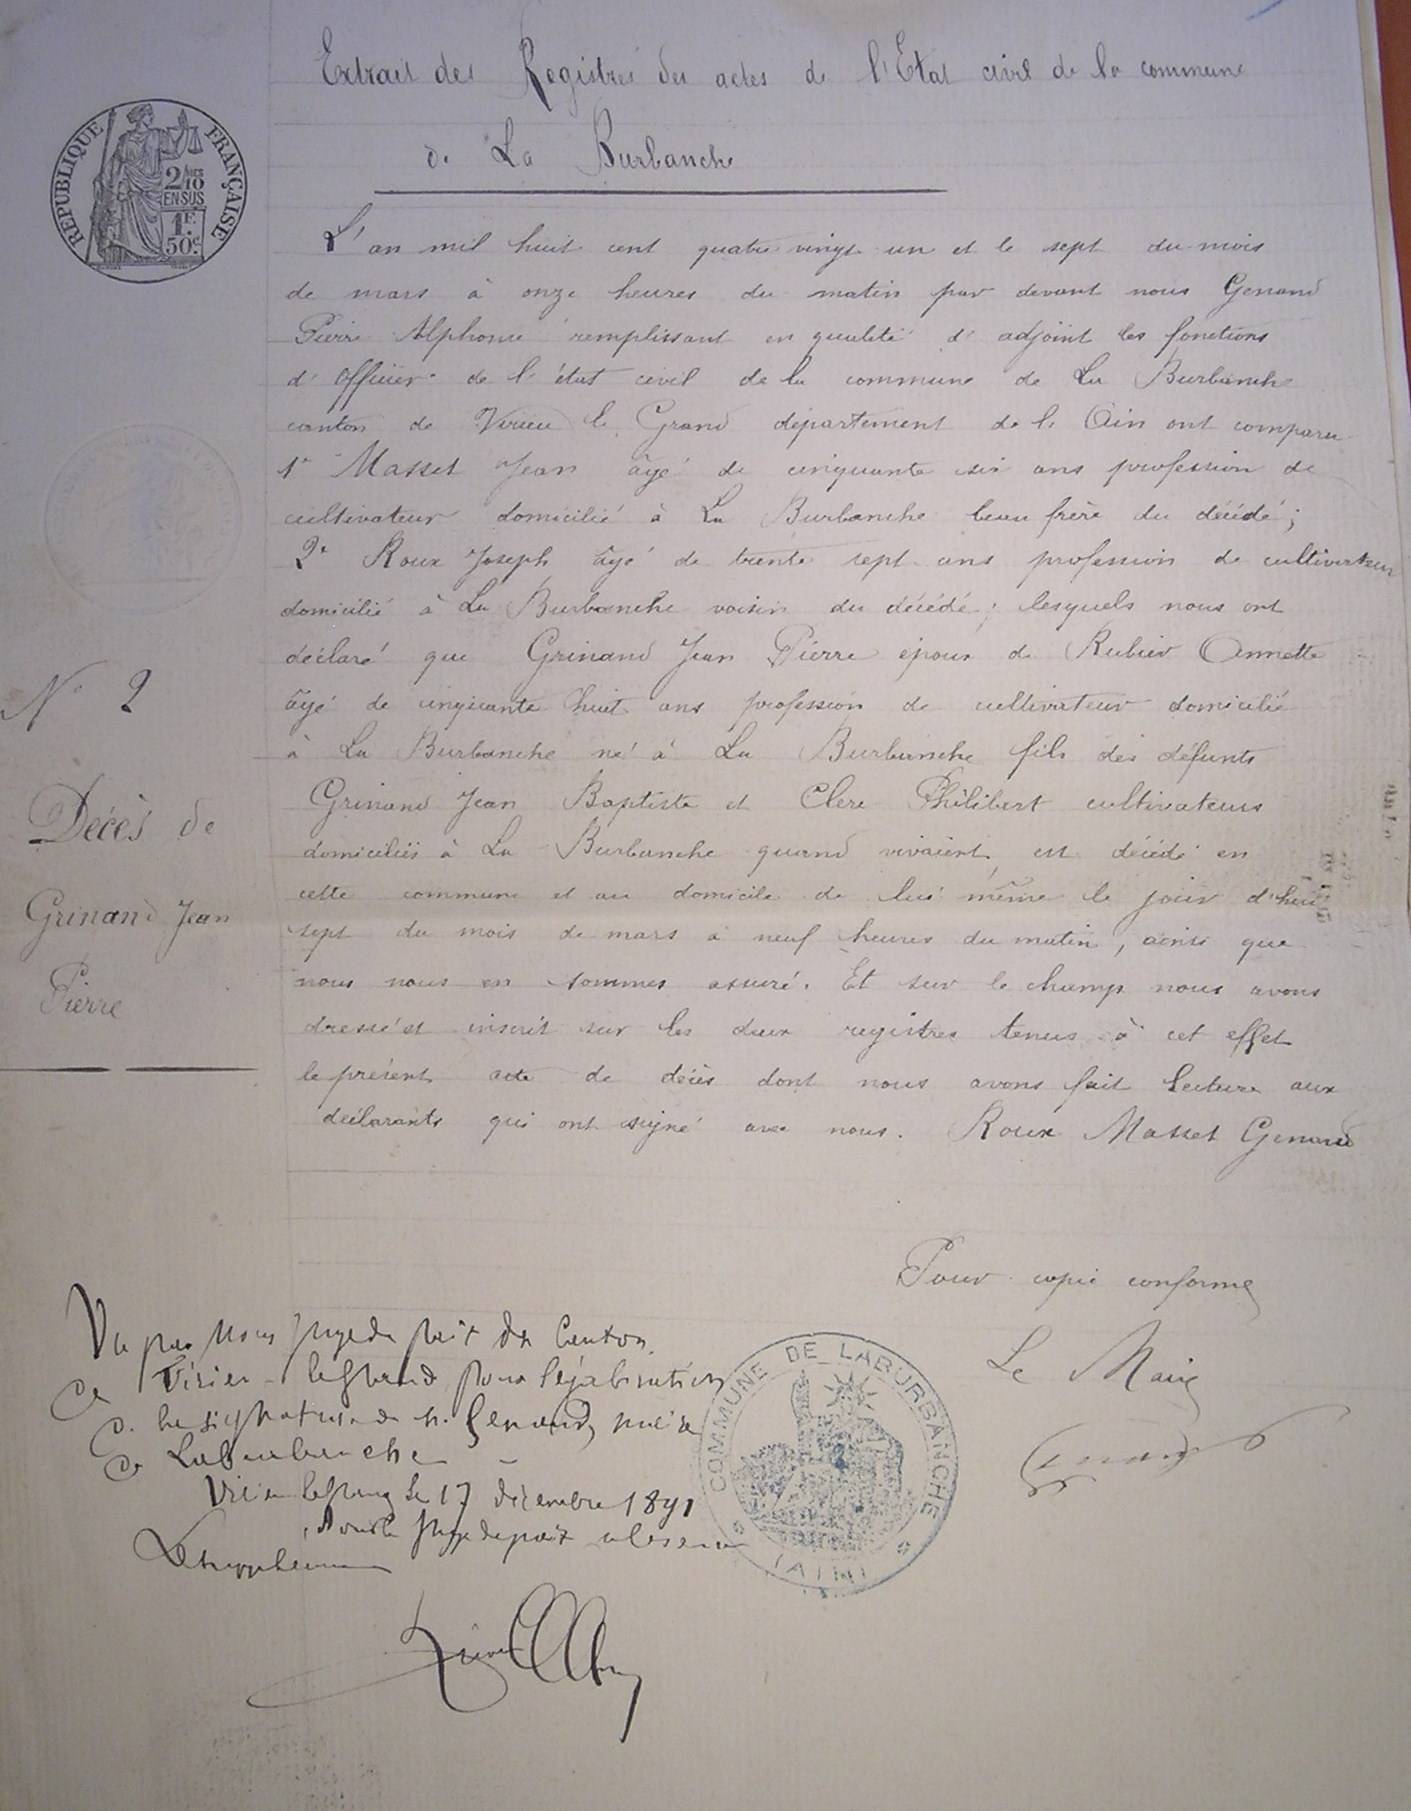 Extrait des Registres des actes de l'Etat civil de la commune
de La Burbanche
RÉPUBLIQUE FRANÇAISE
2/10 EN SUS
1F 50c
L'an mil huit cent quatre vingt un et le sept du mois
de mars à onze heures du matin par devant nous Genand
Pierre Alphonse remplissant en qualité d'adjoint les fonctions
d'officier de l'état civil de la commune de La Burbanche
canton de Virieu le Grand département de l'Ain ont comparu
1° Masset Jean âgé de cinquante six ans profession de
cultivateur domicilié à La Burbanche beau frère du décédé;
2° Roux Joseph âgé de trente sept ans profession de cultivateur
domicilié à La Burbanche voisin du décédé; lesquels nous ont
déclaré que Grinand Jean Pierre époux de Rubier Annette
âgé de cinquante huit ans profession de cultivateur domicilié
à La Burbanche né à La Burbanche fils des défunts
Grinand Jean Baptiste et Clere Philibert cultivateurs
domiciliés à La Burbanche quand vivaient, est décédé en
cette commune et au domicile de lui même le jour d'hui
sept du mois de mars à neuf heures du matin, ainsi que
nous nous en sommes assuré. Et sur le champ nous avons
dressé et inscrit sur les deux registres tenus à cet effet
le présent acte de décès dont nous avons fait lecture aux
déclarants qui ont signé avec nous. Roux Masset Genand
N° 2
Décès de
Grinand Jean
Pierre
Pour copie conforme
Le Maire
Genand
Vu par Nous juge de paix du Canton
de Virieu-le grand pour légalisation
de la signature de M. Genand, maire
de Laburbanche
Virieu le grand le 17 décembre 1891
Pour le juge de paix
COMMUNE DE LABURBANCHE
(AIN)